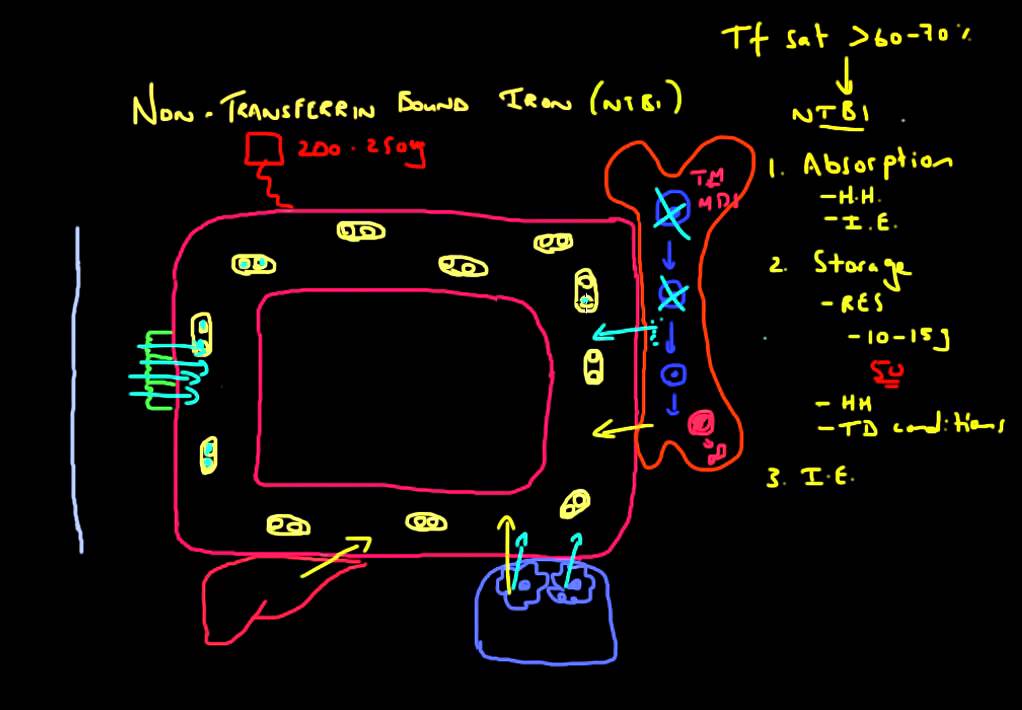 Tf sat >60-70%
NON-TRANSFERRIN BOUND IRON (NTBI)
NTBI
200-250mg
TM
MDS
1. Absorption
- H.H.
- I.E.
2. Storage
- RES
- 10-15g
50
- HH
- TD conditions
3. I.E.